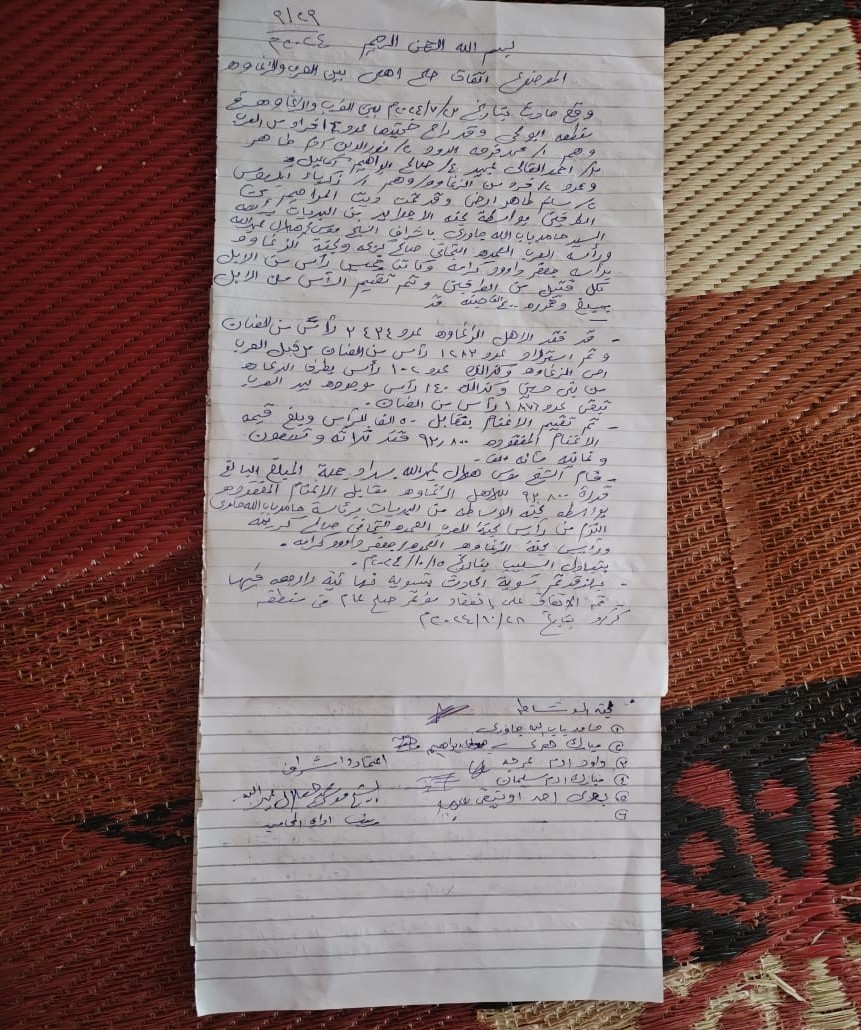 ٩/٢٩
بسم الله الرحمن الرحيم ٢٠٢٤م
الموضوع / اتفاق صلح اهلي بين العرب والزغاوه
وقع حادث بتاريخ ٢٠٢٤/٧/٢٠م بين العرب والزغاوه في
منطقه ابو قمي وقد راح ضحيتها عدد ٤ افراد من العرب
وهم ١/ محمد فرحه الدود ٢/ نور الدين ادم طاهر
٣/ احمد القالي عبيد ٤/ صالح ابراهيم
وعدد ٢ فرد من الزغاوه وهم ١/ زكرياء ادريس
٢/ سليم طاهر ارضي وقد تمت ديت المراحيم بين
الطرفين بواسطة لجنه الاجاويد من البديات برئاسه
السيد حامد باب الله جاوري باشراف الشيخ موسى هلال عبدالله
ورئاسه العرب العمده التجاني صالح كريمه ولجنة الزغاوه
برئاسه جعفر داوود كرامه وكانت خمسين رأس من الابل
لكل قتيل من الطرفين وتم تقييم الرأس من الابل
بمبلغ وقدره ٤٠٠ الف جنيه قد
- قد فقد الاهل الزغاوه عدد ٣٤٣٤ رأس من الضان
وتم استرداد عدد ١٢٨٣ رأس من الضان من قبل العرب
الى الزغاوه وكذالك عدد ١٠٢ رأس بطرف الدعاه
من بني حسين وكذالك ١٤٠ رأس موجوده بيد العرب
تبقى عدد ١٨٧٦ رأس من الضان.
- تم تقييم الاغنام بمقابل ٥٠ الف للرأس ويبلغ قيمه
الاغنام المفقوده ٩٣,٨٠٠ فقد ثلاثه وتسعون
وثمانيه مائه الف.
- قام الشيخ موسى هلال عبدالله بسداد جملة المبلغ البالغ
قدره ٩٣,٨٠٠ للاهل الزغاوه مقابل الاغنام المفقوده
بواسطه لجنه الوساطه من البديات برئاسة حامد باب الله جاوري
التزم من رئاسي لجنة العرب العمده التجاني صالح كريمه
ورئيس لجنة الزغاوه العمده/ جعفر داوود كرامه.
بتبادل السليب بتاريخ ٢٠٢٤/١٠/١٥م.
- عليه قد تم تسوية الحادث بتسوية نهائية لا رجعه فيها
تم الاتفاق على انعقاد مؤتمر صلح عام في منطقه
كررو بتاريخ ٢٠٢٤/١٠/٢٨م
لجنة الوساطه
١ حامد باب الله جاوري
٢ مبارك ابراهيم
٣ داود ادم
٤ مبارك ادم سليمان
٥ احمد
٦
اعتماد واشراف
الشيخ موسى هلال عبدالله